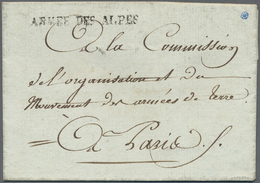 ARMÉE DES ALPES
A la Commission
de l'organisation et du
Mouvement des armées de terre
A Paris